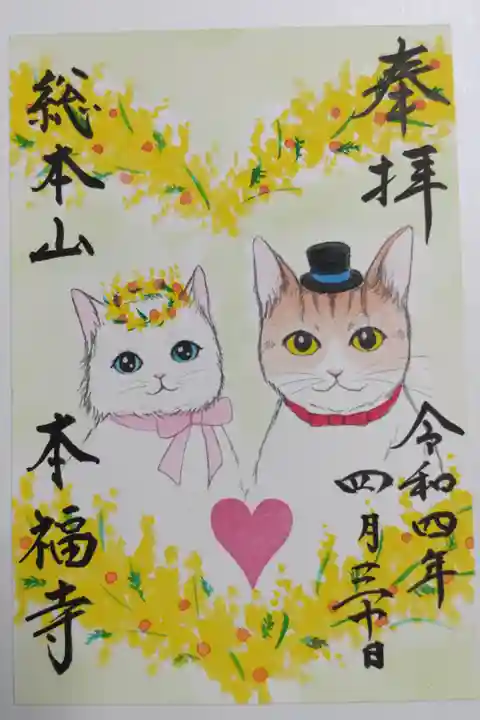 奉拝
令和四年
四月三十日
総本山
本福寺